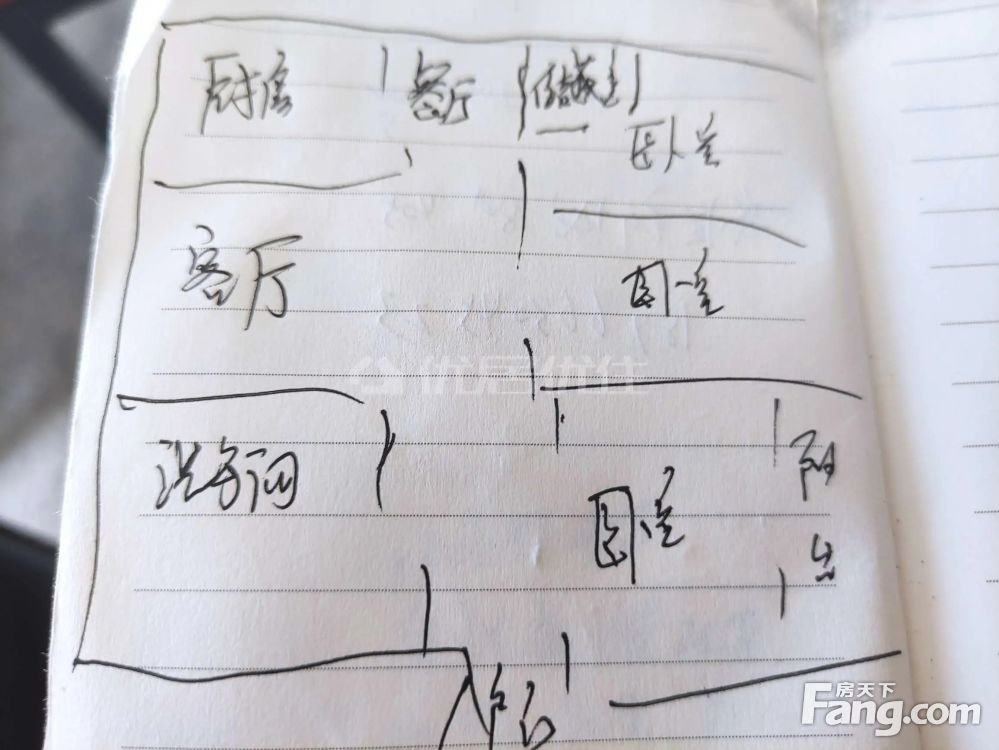 厨房 餐厅 储藏室
卧室
客厅
卧室
洗手间
卧室
阳台
户
优居优住
房天下
Fang.com